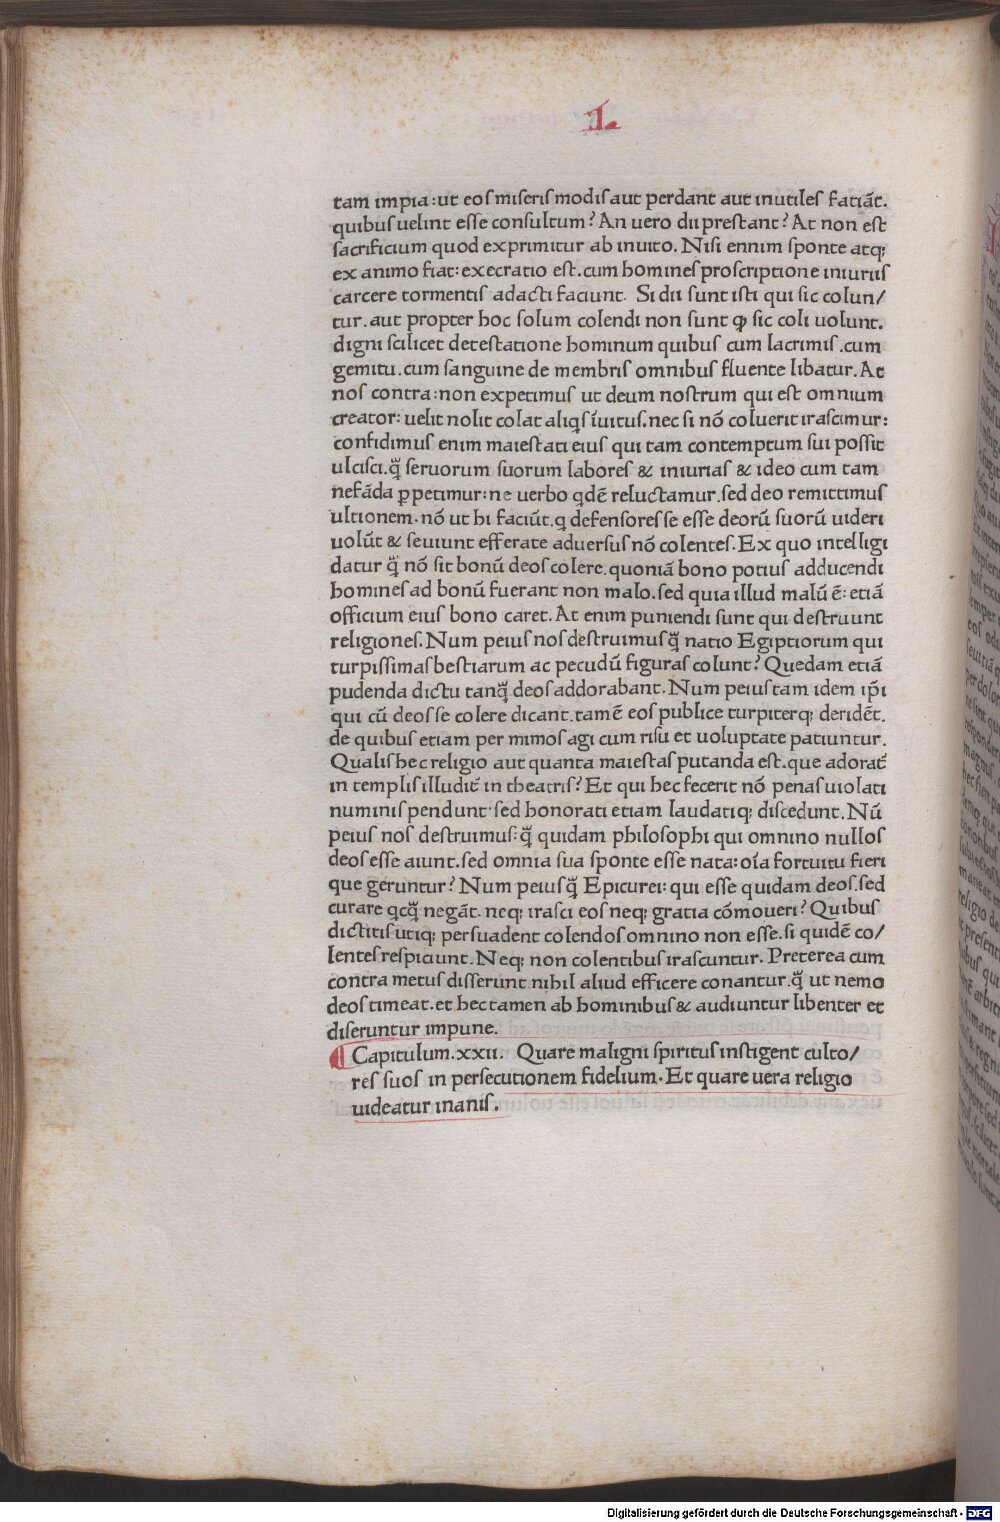 L.
tam impia:ut eoſ miſeriſ modiſ aut perdant aut inutileſ faciāt.
quibuſ uelint eſſe conſultum? An uero dii preſtant? At non eſt
ſacrificium quod exprimitur ab inuito. Niſi ennim ſponte atq;
ex animo fiat: execratio eſt.cum homineſ proſcriptione iniuriiſ
carcere tormentiſ adacti faciunt. Si dii ſunt iſti qui ſic colun/
tur.aut propter hoc ſolum colendi non ſunt ꝙ ſic coli uolunt.
digni ſcilicet deteſtatione hominum quibuſ cum lacrimiſ.cum
gemitu.cum ſanguine de membriſ omnibuſ fluente libatur. At
nos contra:non expetimuſ ut deum noſtrum qui eſt omnium
creator: uelit nolit colat aliqſ īuituſ.nec ſi nō coluerit iraſcimur:
confidimuſ enim maieſtati eiuſ qui tam contemptum ſui poſſit
ulciſci.q̄̃ ſeruorum ſuorum laboreſ & iniuriaſ & ideo cum tam
nefāda ꝑpetimur:ne uerbo qdē reluctamur.ſed deo remittimuſ
ultionem.nō ut hi faciūt.q defenſoreſ ſe eſſe deorū ſuorū uideri
uolūt & ſeuiunt efferate aduerſuſ nō colenteſ. Ex quo intelligi
datur q̄̃ nō ſit bonū deoſ colere.quoniā bono potiuſ adducendi
homineſ ad bonū fuerant non malo.ſed quia illud malū ē: etiā
officium eiuſ bono caret. At enim puniendi ſunt qui deſtruunt
religioneſ. Num peiuſ noſ deſtruimuſ q̄̃ natio Egiptiorum qui
turpiſſimaſ beſtiarum ac pecudū figuraſ colunt? Quedam etiā
pudenda dictu tanq̄̃ deoſ addorabant. Num peiuſ tam idem ip̄i
qui cū deoſ ſe colere dicant.tamē eoſ publice turpiterq; deridēt.
de quibuſ etiam per mimoſ agi cum riſu et uoluptate patiuntur.
Qualiſ hec religio aut quanta maieſtaſ putanda eſt.que adorat̄
in templiſ illudit̄ in theatriſ? Et qui hec fecerit nō penaſ uiolati
numiniſ pendunt·ſed honorati etiam laudatiq; diſcedunt. Nū
peiuſ noſ deſtruimuſ:q̄̃ quidam philoſophi qui omnino nulloſ
deoſ eſſe aiunt.ſed omnia ſua ſponte eſſe nata:oīa fortuitu fieri
que geruntur? Num peiuſ q̄̃ Epicurei: qui eſſe quidam deoſ.ſed
curare qcq̄̃ negāt. neq; iraſci eoſ neq; gratia cōmoueri? Quibuſ
dictitiſ utiq; perſuadent colendoſ omnino non eſſe.ſi quidē co/
lenteſ reſpiciunt. Neq; non colentibuſ iraſcuntur. Preterea cum
contra metuſ diſſerunt nihil aliud efficere conantur.q̄̃ ut nemo
deoſ timeat.et hec tamen ab hominibuſ & audiuntur libenter et
diſeruntur impune.
Capitulum.xxii. Quare maligni ſpirituſ inſtigent culto/
reſ ſuoſ in perſecutionem fidelium. Et quare uera religio
uideatur inaniſ.
Digitalisierung gefördert durch die Deutsche Forschungsgemeinschaft - DFG